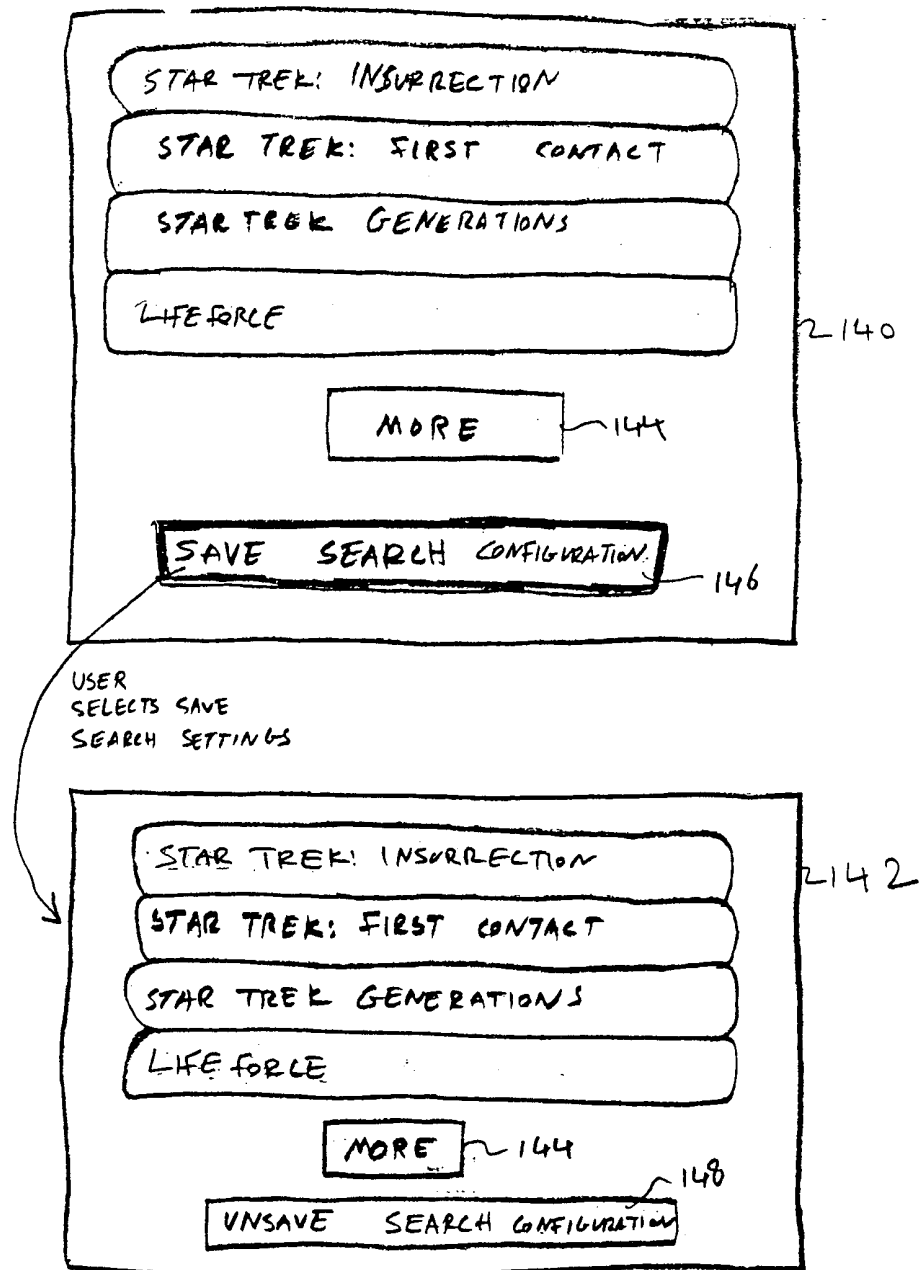 STAR TREK: INSURRECTION
STAR TREK: FIRST CONTACT
STAR TREK GENERATIONS
LIFEFORCE
140
MORE
144
SAVE SEARCH CONFIGURATION
146
USER
SELECTS SAVE
SEARCH SETTINGS
STAR TREK: INSURRECTION
142
STAR TREK: FIRST CONTACT
STAR TREK GENERATIONS
LIFE FORCE
MORE
144
148
UNSAVE SEARCH CONFIGURATION